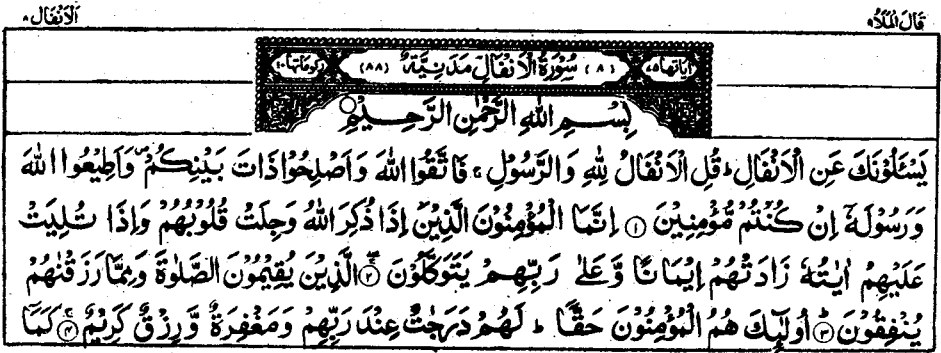 قَالَ الْمَلَاُ ٩ اَلْاَنْفَال ٨
اٰیَاتُهَا ٧٥ (٨) سُوْرَةُ الْاَنْفَالِ مَدَنِیَّةٌ (٨٨) رُكُوْعَاتُهَا ١٠
بِسْمِ اللّٰهِ الرَّحْمٰنِ الرَّحِیْمِ
یَسْـَٔلُوْنَكَ عَنِ الْاَنْفَالِ ؕ قُلِ الْاَنْفَالُ لِلّٰهِ وَالرَّسُوْلِ ۚ فَاتَّقُوا اللّٰهَ وَاَصْلِحُوْا ذَاتَ بَیْنِكُمْ ۪ وَاَطِیْعُوا اللّٰهَ
وَرَسُوْلَهٗۤ اِنْ كُنْتُمْ مُّؤْمِنِیْنَ ﴿١﴾ اِنَّمَا الْمُؤْمِنُوْنَ الَّذِیْنَ اِذَا ذُكِرَ اللّٰهُ وَجِلَتْ قُلُوْبُهُمْ وَاِذَا تُلِیَتْ
عَلَیْهِمْ اٰیٰتُهٗ زَادَتْهُمْ اِیْمَانًا وَّعَلٰی رَبِّهِمْ یَتَوَكَّلُوْنَ ﴿٢﴾ الَّذِیْنَ یُقِیْمُوْنَ الصَّلٰوةَ وَمِمَّا رَزَقْنٰهُمْ
یُنْفِقُوْنَ ﴿٣﴾ اُولٰٓئِكَ هُمُ الْمُؤْمِنُوْنَ حَقًّا ؕ لَهُمْ دَرَجٰتٌ عِنْدَ رَبِّهِمْ وَمَغْفِرَةٌ وَّرِزْقٌ كَرِیْمٌ ﴿٤﴾ كَمَاۤ